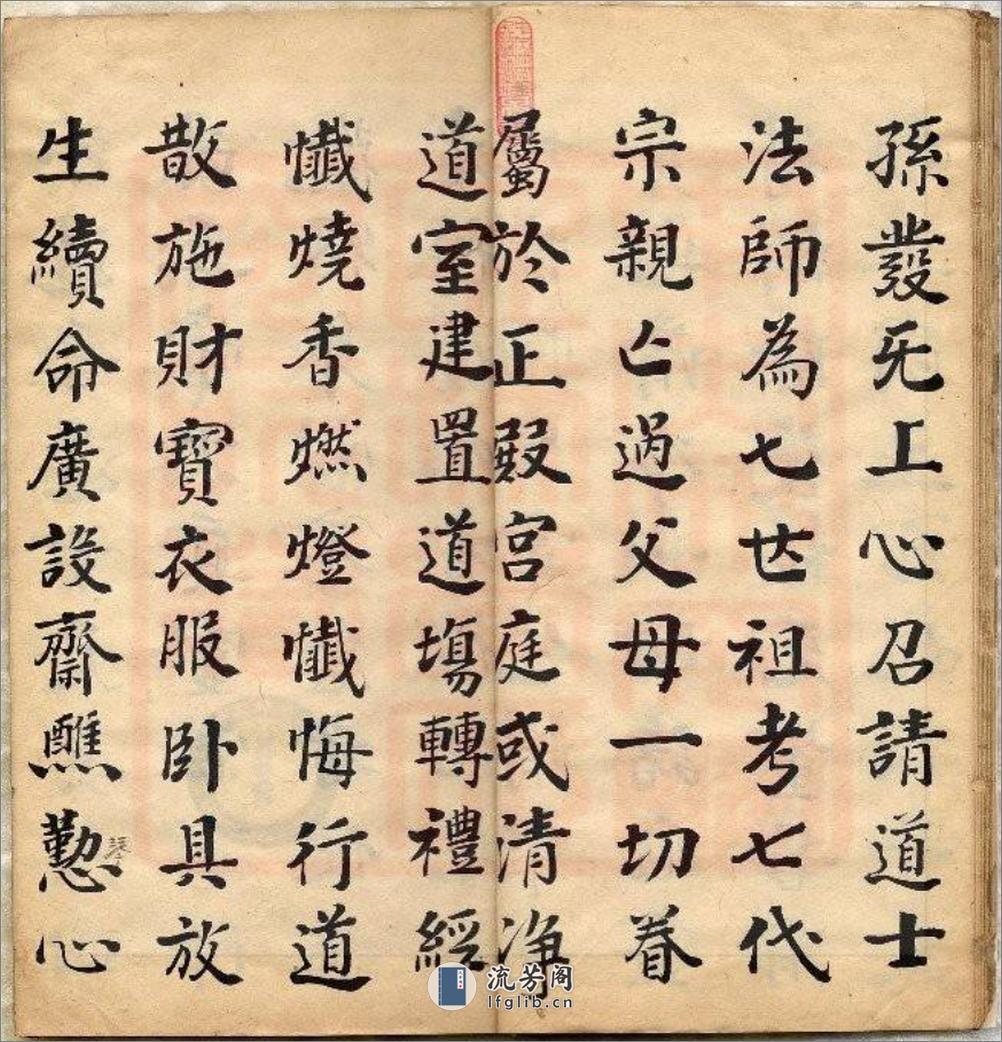 孫發旡上心召請道士
法師為七世祖考七代
宗親亡過父母一切眷
屬於正殿宫庭或清净
道室建置道塲轉禮經
懴燒香燃燈懴悔行道
散施財寳衣服卧具放
生續命廣設齋醮懃心
流芳阁
lfglib.cn